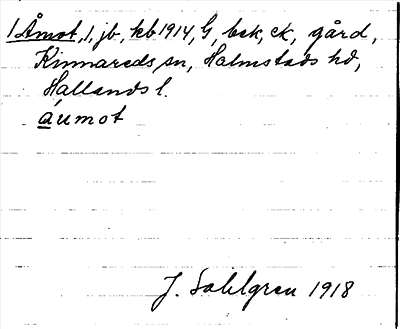 1 Åmot, 1, jb, kb 1914, G, bek, ek, gård,
Kinnareds sn, Halmstads hd,
Hallands l.
aumot
J. Sahlgren 1918